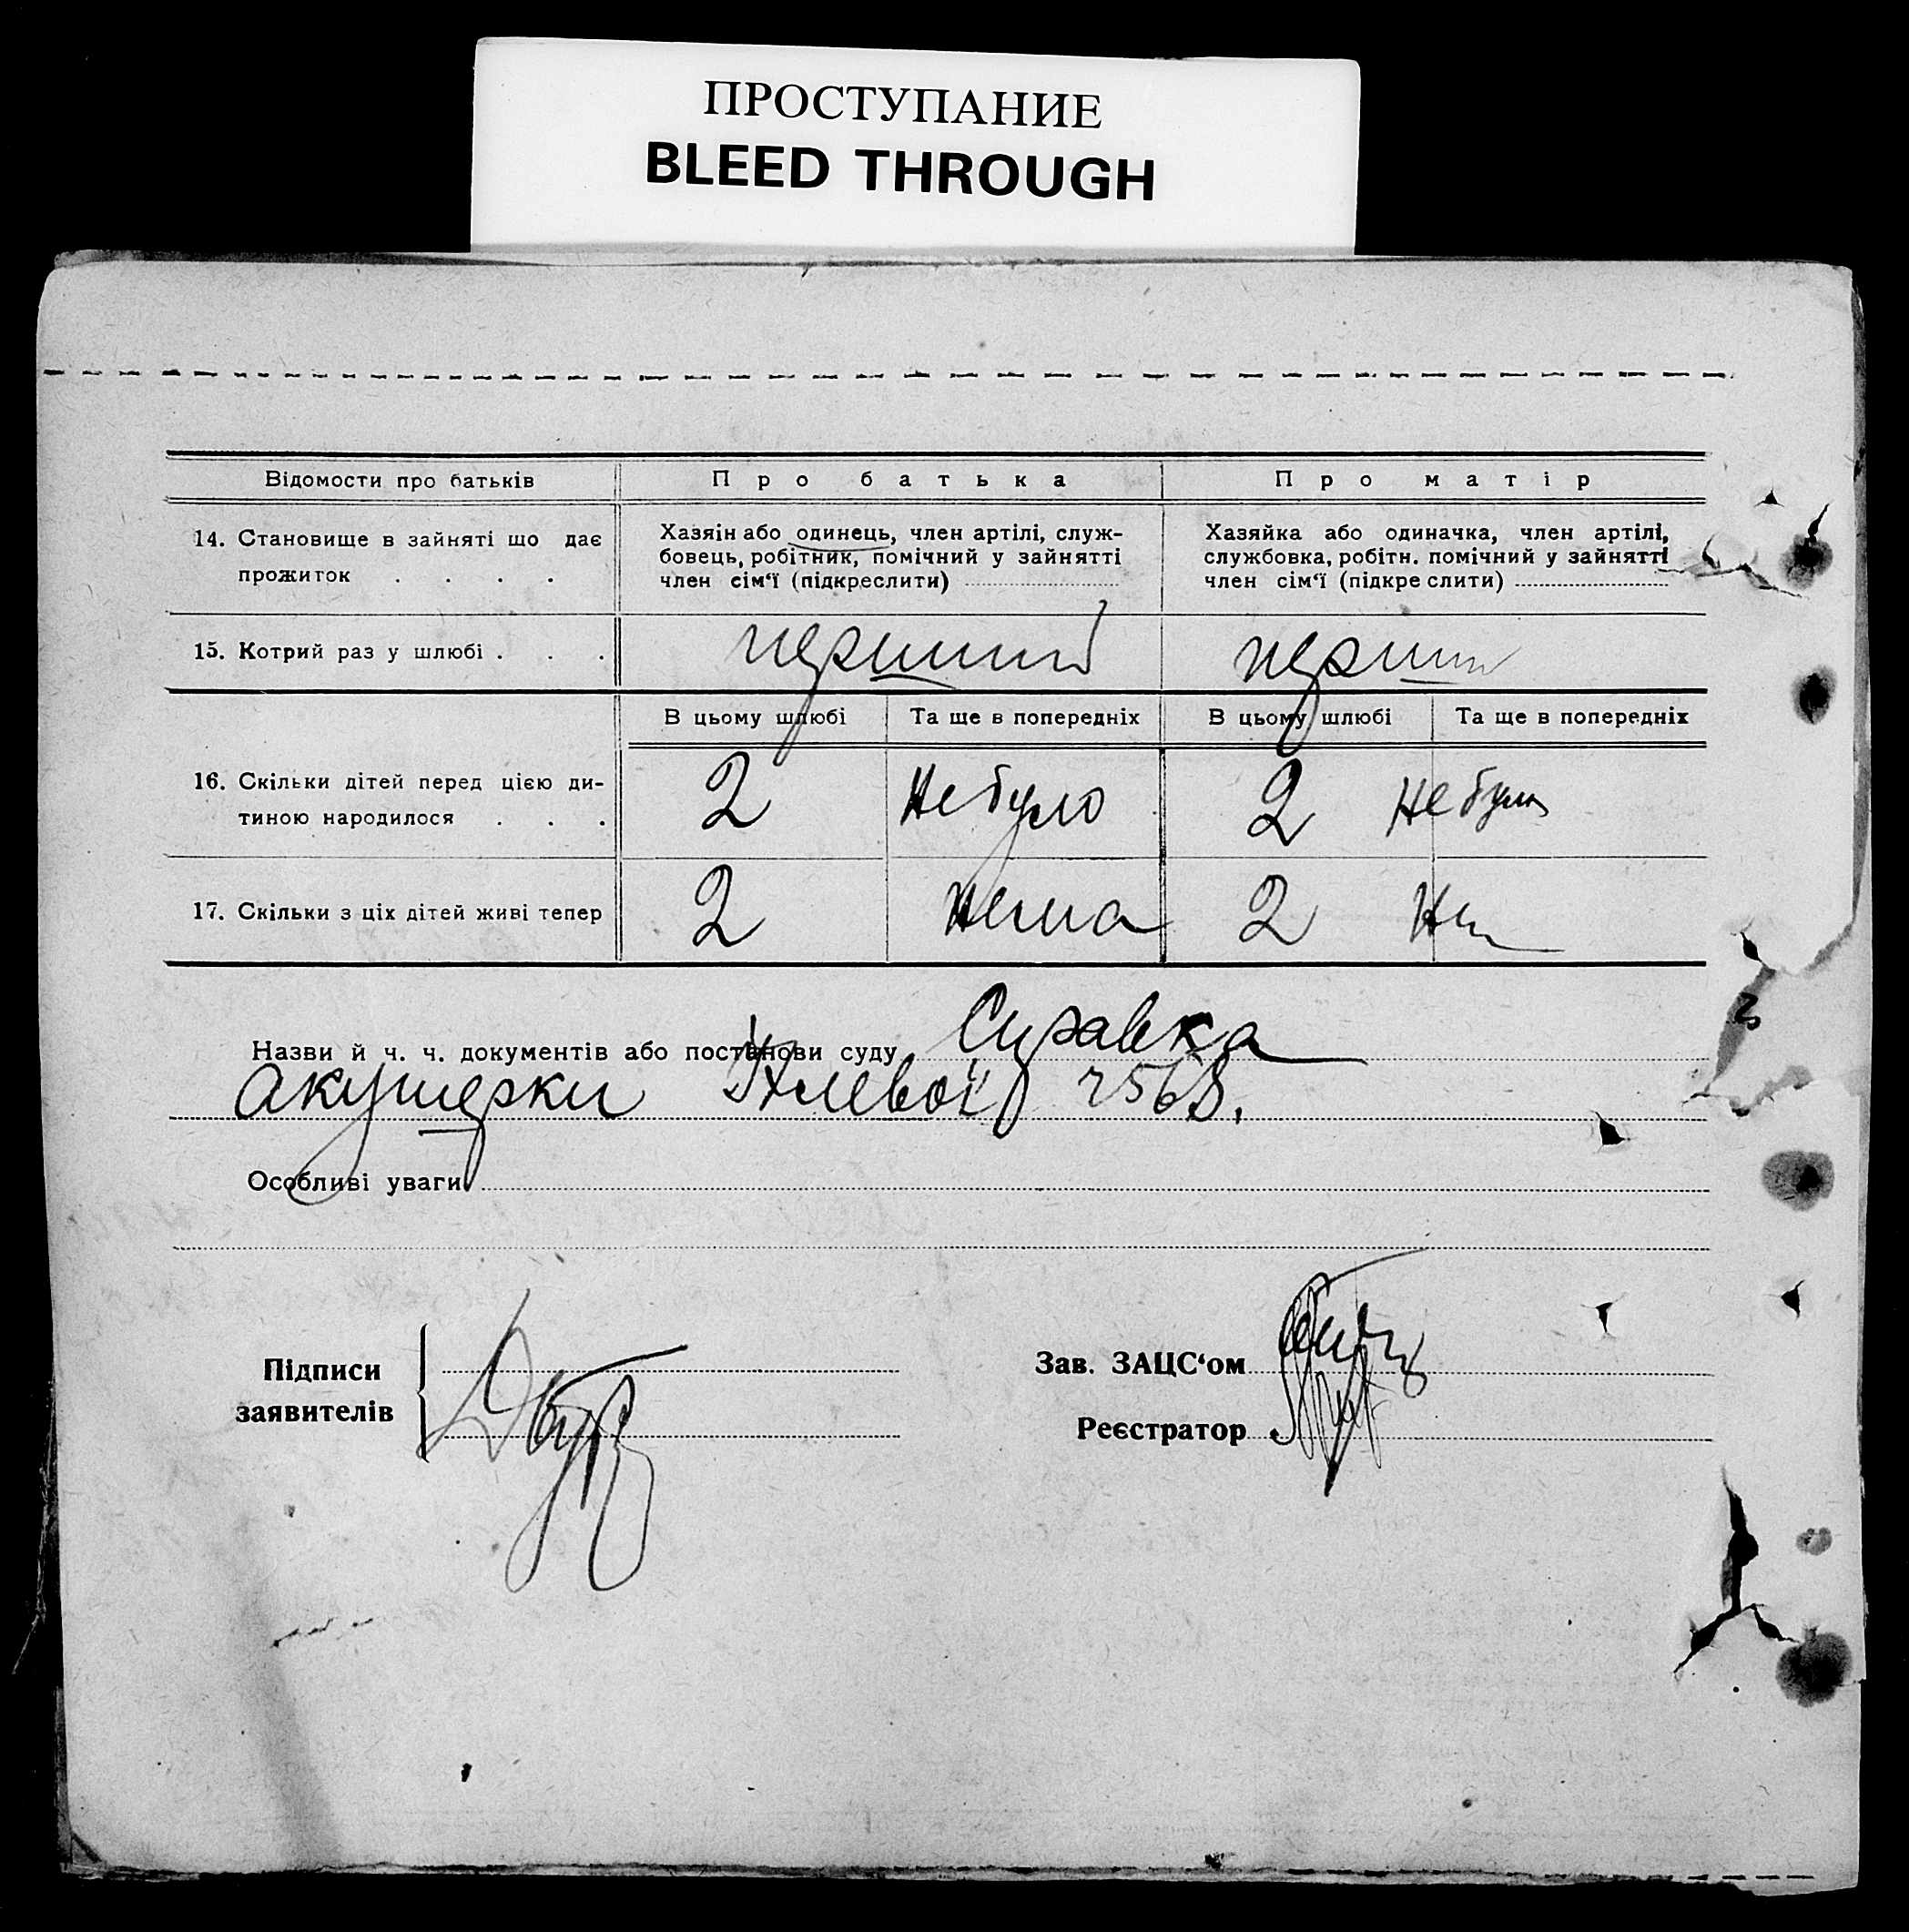 ПРОСТУПАНИЕ
BLEED THROUGH
Відомости про батьків Про батька Про матір
14. Становище в зайняті що дає прожиток . . . .
Хазяін або одинець, член артілі, служ-
бовець, робітник, помічний у зайнятті
член сім‘ї (підкреслити)
Хазяйка або одиначка, член артілі,
службовка, робітн. помічний у зайнятті
член сім‘ї (підкреслити)
15. Котрий раз у шлюбі . . . перший перши
В цьому шлюбі Та ще в попередніх В цьому шлюбі Та ще в попередніх
16. Скільки дітей перед цією ди-
тиною народилося . . . 2 Небуло 2 Небуло
17. Скільки з ціх дітей живі тепер 2 Нема 2
Назви й ч. ч. документів або постанови суду Справка
акушерки
Особливі уваги
Підписи
заявителів
Зав. ЗАЦС‘ом
Реєстратор